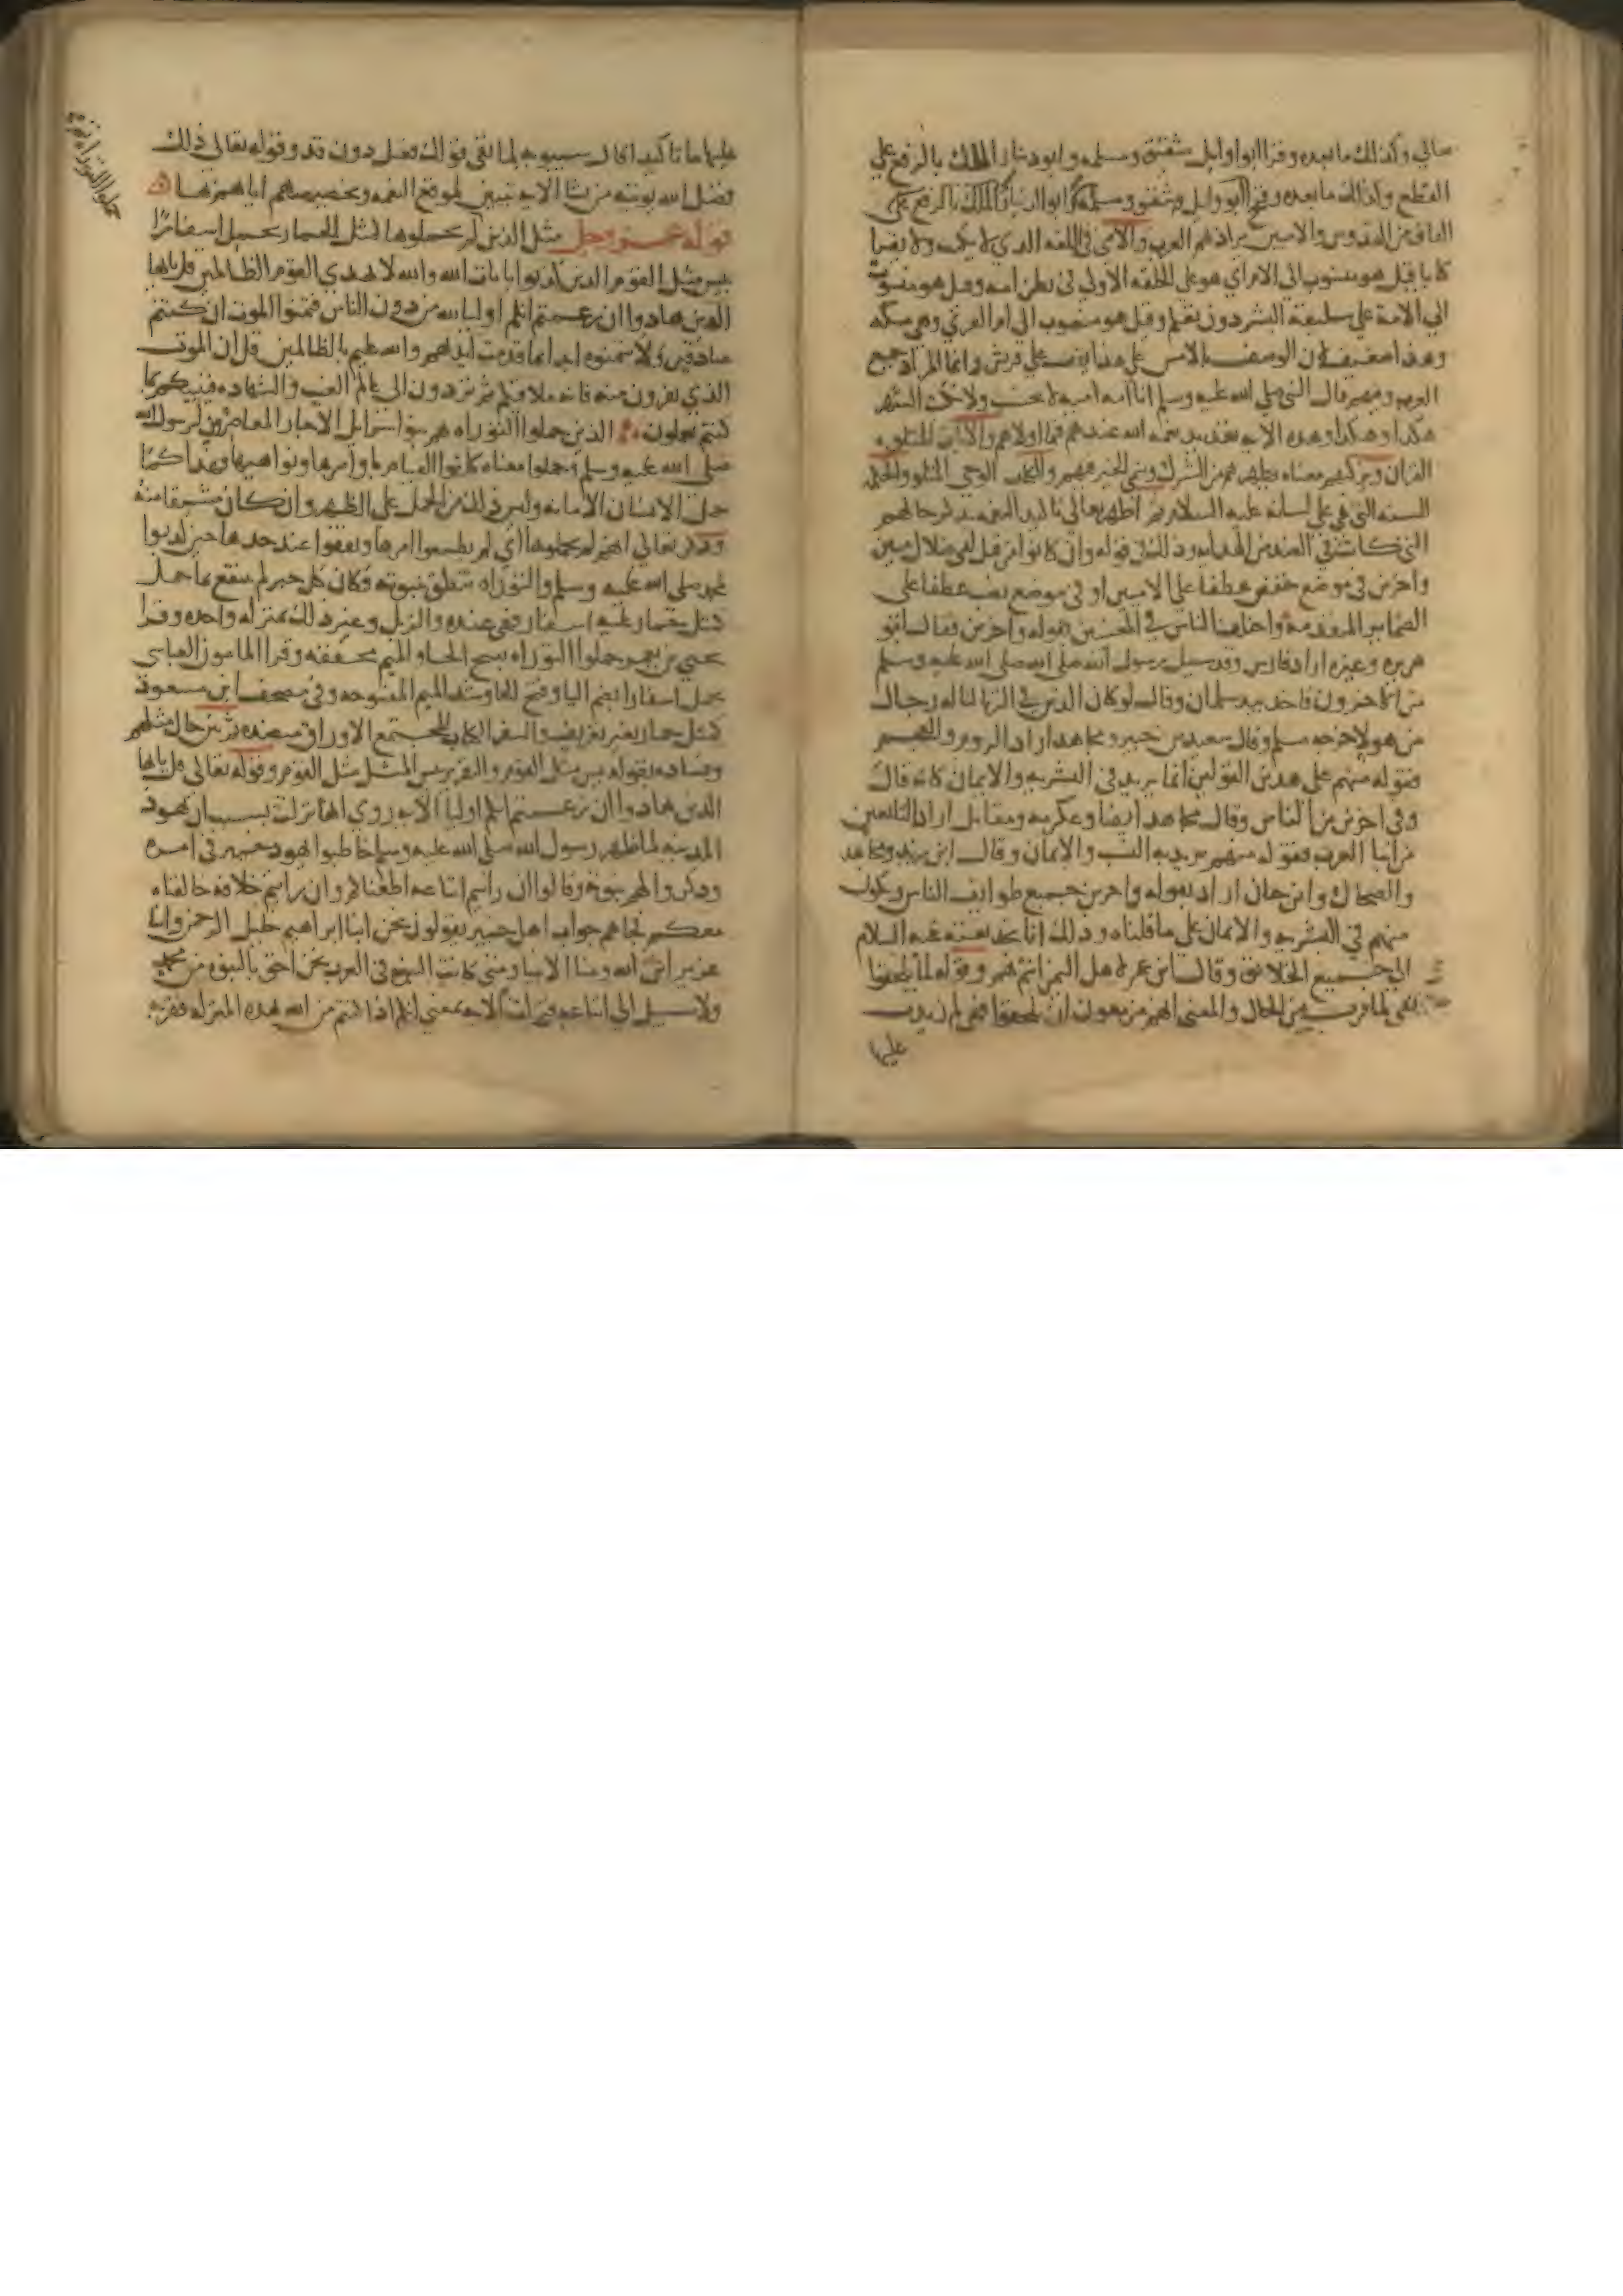 تعالى وكذلك ما بعده وقرا ابو وايل شقيق ومسلمه وابو دينار الملك بالرفع على
القطع وكذلك ما بعده وقرا ابو وايل وشقيق ومسلمة وابو الدينار الملك بالرفع
القاف من القدوس والاميين يراد بهم العرب والامي في اللغه الذي لا يكتب ولا يقرا
كتابا قيل هو منسوب الى الام اي هو على الخلقه الاولى في بطن امه وقيل هو منسوب
الى الامة على سليقة البشر دون تعلم وقيل هو منسوب الى ام القرى وهي مكه
وهذا ضعيف لان الوصف بالاميين على هذا يقف على قريش وانما المراد جميع
العرب وفيهم قال النبي صلى الله عليه وسلم انا امه اميه لا نحسب ولا نكتب الشهر
هكذا وهكذا وهذه الايه تعديد نعمه الله عندهم فيما اولاهم والايات المتلوه
القران ويزكيهم معناه يطهرهم من الشرك وينمي الخير فيهم والكتاب الوحي المتلو والحكمه
السنه التي هي على لسانه عليه السلام ثم اظهر تعالى تاكيد النعمه بذكر حالهم
التي كانت في الضد من الهدايه وذلك في قوله وان كانوا من قبل لفي ضلال مبين
واخرين في موضع خفض عطفا على الاميين او في موضع نصب عطفا على
الضماير المتقدمة واختلف الناس في المعنيين بقوله واخرين فقال ابو
هريره وغيره اراد فارس وقد سيل رسول الله صلى الله عليه وسلم
من الاخرون فاخذ بيد سلمان وقال لو كان الدين في الثريا لناله رجال
من هولا خرجه مسلم وقال سعيد بن جبير ومجاهد اراد الروم والعجم
فقوله منهم على هذين القولين انما يريد في البشريه والايمان كانه قال
وفي اخرين من الناس وقال مجاهد ايضا وعكرمه ومقاتل اراد التابعين
من ابنا العرب فقوله منهم يريد به النسب والايمان وقال ابن زيد ومجاهد
والضحاك وابن حبان اراد بقوله واخرين جميع طوايف الناس ويكون
منهم في البشريه والايمان على ما قلناه وذلك انا نجد بعثته عليه السلام
الى جميع الخلايق وقال ابن عمر لاهل اليمن انتم هم وقوله لما يلحقوا
نفي لما قرب من الحال والمعنى انهم مزمعون ان يلحقوا فهي لم زيدت
عليها
عليها ما تاكيدا قال سيبويه لما نفي قولك فعل دون قد وقوله تعالى ذلك
فضل الله يوتيه من يشا الايه تبيين لموقع النعمه وتخصيصهم اياهم بها
قوله عز وجل مثل الذين حملوا التوراه ثم لم يحملوها كمثل الحمار يحمل اسفارا
بيس مثل القوم الذين كذبوا بايات الله والله لا يهدي القوم الظالمين قل يا ايها
الذين هادوا ان زعمتم انكم اوليا لله من دون الناس فتمنوا الموت ان كنتم
صادقين ولا يتمنونه ابدا بما قدمت ايديهم والله عليم بالظالمين قل ان الموت
الذي تفرون منه فانه ملاقيكم ثم تردون الى عالم الغيب والشهاده فينبيكم بما
كنتم تعملون الذين حملوا التوراه هم بنو اسرايل الاحبار المعاصرون لرسول الله
صلى الله عليه وسلم وحملوا معناه كلفوا القيام بها وامرها ونواهيها وهذا كما
حمل الانسان الامانه وليس ذلك من الحمل على الظهر وان كان مشتقا منه
وذكر تعالى انهم لم يحملوها اي لم يطيعوا امرها ويقفوا عند حدها حين كذبوا
بمحمد صلى الله عليه وسلم والتوراه تنطق بنبوته وكان كل حبر لم ينتفع بما حمل
كمثل حمار عليه اسفار فهي عنده والزبل وغير ذلك بمنزله واحده وقرا
يحيى بن يعمر حملوا التوراه بفتح الحا والميم مخففه وقرا المامون العباسي
يحمل اسفارا بضم اليا وفتح الحا وشد الميم المفتوحه وفي مصحف ابن مسعود
كمثل حمار بغير تعريف والسفر الكتاب المجتمع الاوراق منضده ثم بين حال مثلهم
وفساده بقوله بيس مثل القوم والتقدير بيس المثل مثل القوم وقوله تعالى قل يا ايها
الذين هادوا ان زعمتم انكم اوليا الايه روي انها نزلت بسبب ان يهود
المدينه لما ظهر رسول الله صلى الله عليه وسلم خاطبوا يهود خيبر في امره
وذكروا لهم نبوته وقالوا ان رايتم اتباعه اطعناكم وان رايتم خلافه خالفناه
معكم فجاهم جواب اهل خيبر يقولون نحن ابنا ابراهيم خليل الرحمن وابنا
عزير ابن الله ومنا الانبيا ومتى كانت النبوه في العرب نحن احق بالنبوه من محمد
ولا سبيل الى اتباعه فنزلت الايه بمعنى انكم اذا كنتم من الله بهذه المنزله فقربه
حملوا التوراه ثم